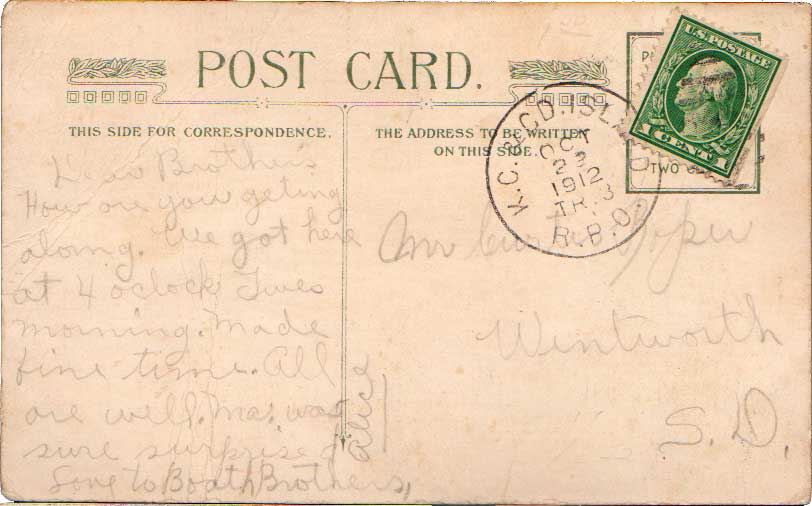 POST CARD.
THIS SIDE FOR CORRESPONDENCE.
THE ADDRESS TO BE WRITTEN
ON THIS SIDE.
Dear Brothers
How are you geting
along. We got here
at 4 oclock Tues
morning. Made
fine time. All
are well. Ma. was
sure surprised
Love to Boath Brothers,
Alice
Mr
Wentworth
S. D.
K.C. & CD. ISLAND
OCT
2
1912
TR. 3
R.P.O.
U.S. POSTAGE
1 CENT 1
TWO